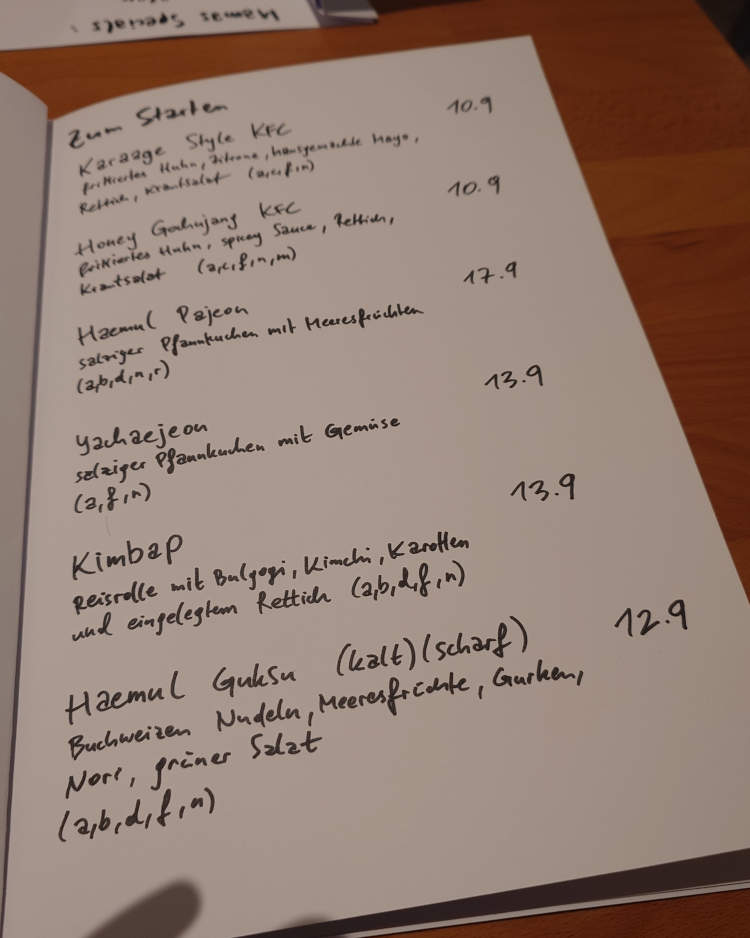 Mamas Specials :
Zum Starten
Karaage Style KFC 10.9
frittiertes Huhn, Zitrone, hausgemachte Mayo,
Rettich, Krautsalat (a,c,f,n)
Honey Gochujang KFC 10.9
frittiertes Huhn, spicy Sauce, Rettich,
Krautsalat (a,c,f,n,m)
Haemul Pajeon 17.9
salziger Pfannkuchen mit Meeresfrüchten
(a,b,d,n,r)
Yachaejeon 13.9
salziger Pfannkuchen mit Gemüse
(a,f,n)
Kimbap 13.9
Reisrolle mit Bulgogi, Kimchi, Karotten
und eingelegtem Rettich (a,b,d,f,n)
Haemul Guksu (kalt)(scharf) 12.9
Buchweizen Nudeln, Meeresfrüchte, Gurken,
Nori, grüner Salat
(a,b,d,f,n)